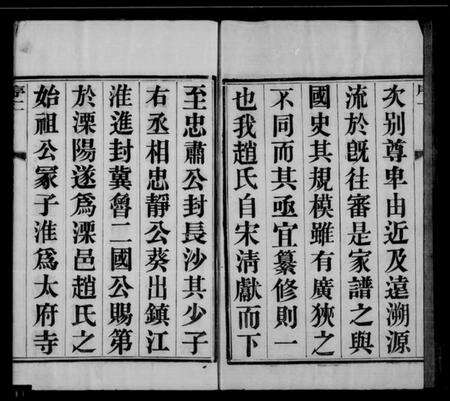 次别尊卑由近及遠溯源
流於旣往審是家譜之與
國史其規模雖有廣狹之
不同而其亟宜纂修則一
也我趙氏自宋清獻而下
至忠肅公封長沙其少子
右丞相忠靖公葵出鎮江
淮進封冀魯二國公賜第
於溧陽遂爲溧邑趙氏之
始祖公冢子淮爲太府寺
序二